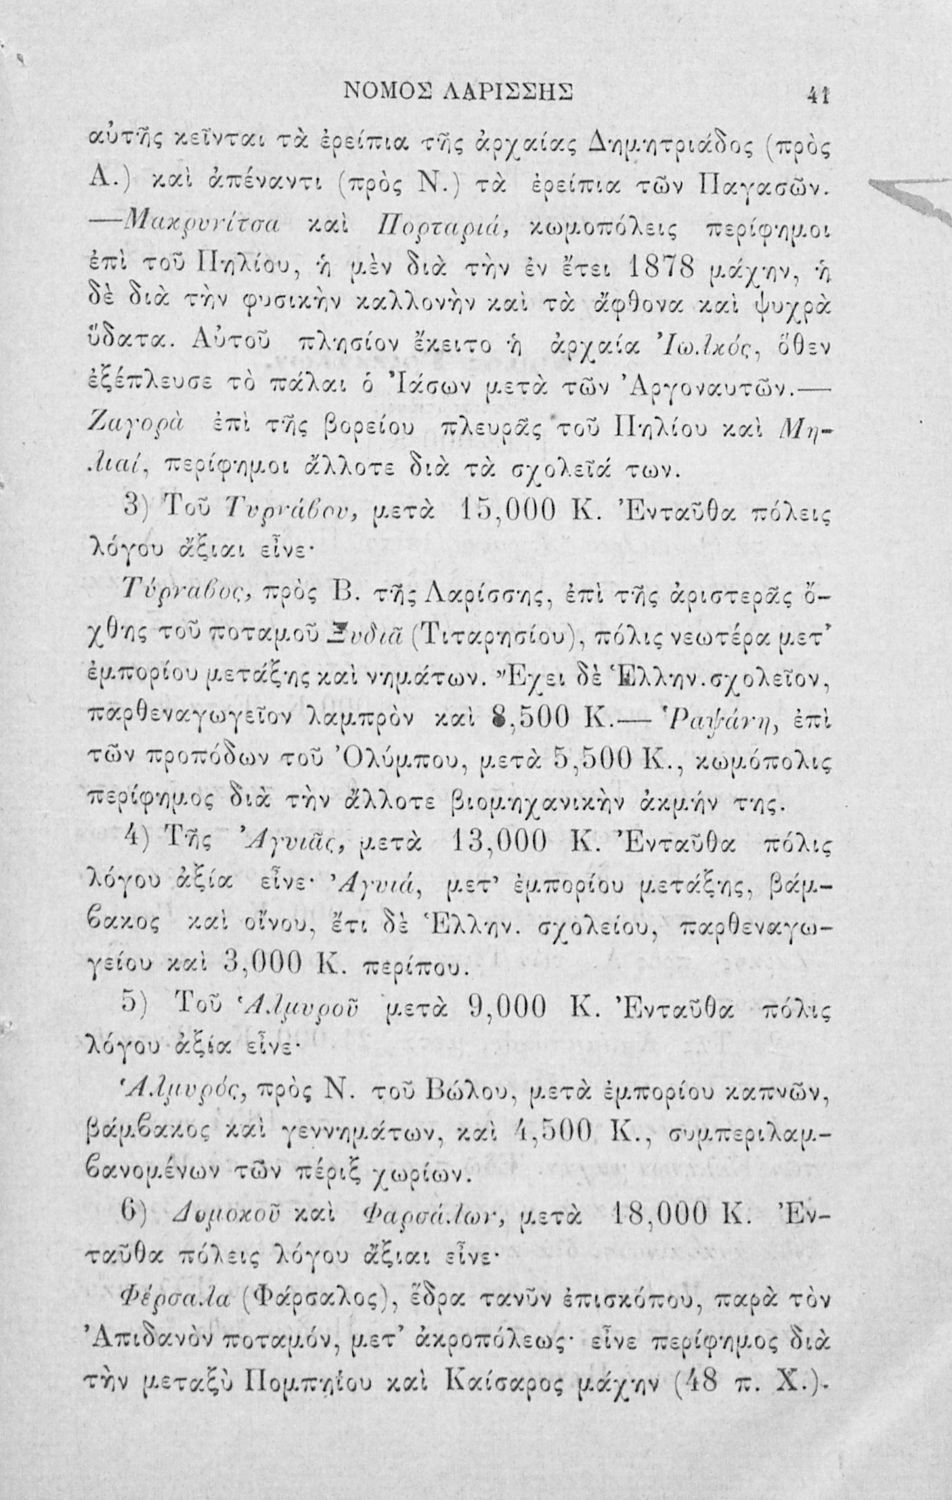 ΝΟΜΟΣ ΛΑΡΙΣΣΗΣ 41
αὐτῆς κεῖνται τὰ ἐρείπια τῆς ἀρχαίας Δημητριάδος (πρὸς
Α.) καὶ ἀπέναντι (πρὸς Ν.) τὰ ἐρείπια τῶν Παγασῶν.
—Μακρυνίτσα καὶ Πορταριά, κωμοπόλεις περίφημοι
ἐπὶ τοῦ Πηλίου, ἡ μὲν διὰ τὴν ἐν ἔτει 1878 μάχην, ἡ
δὲ διὰ τὴν φυσικὴν καλλονὴν καὶ τὰ ἄφθονα καὶ ψυχρὰ
ὕδατα. Αὐτοῦ πλησίον ἔκειτο ἡ ἀρχαία Ἰωλκός, ὅθεν
ἐξέπλευσε τὸ πάλαι ὁ Ἰάσων μετὰ τῶν Ἀργοναυτῶν.—
Ζαγορὰ ἐπὶ τῆς βορείου πλευρᾶς τοῦ Πηλίου καὶ Μη-
λιαί, περίφημοι ἄλλοτε διὰ τὰ σχολεῖά των.
3) Τοῦ Τυρνάβου, μετὰ 15,000 Κ. Ἐνταῦθα πόλεις
λόγου ἄξιαι εἶνε·
Τύρναβος, πρὸς Β. τῆς Λαρίσσης, ἐπὶ τῆς ἀριστερᾶς ὄ-
χθης τοῦ ποταμοῦ Ξυδιᾶ (Τιταρησίου), πόλις νεωτέρα μετ’
ἐμπορίου μετάξης καὶ νημάτων. Ἔχει δὲ Ἑλλην. σχολεῖον,
παρθεναγωγεῖον λαμπρὸν καὶ 8,500 Κ.— Ῥαψάνη, ἐπὶ
τῶν προπόδων τοῦ Ὀλύμπου, μετὰ 5,500 Κ., κωμόπολις
περίφημος διὰ τὴν ἄλλοτε βιομηχανικὴν ἀκμήν της.
4) Τῆς Ἀγυιᾶς, μετὰ 13,000 Κ. Ἐνταῦθα πόλις
λόγου ἀξία εἶνε· Ἀγυιά, μετ’ ἐμπορίου μετάξης, βάμ-
βακος καὶ οἴνου, ἔτι δὲ Ἑλλην. σχολείου, παρθεναγω-
γείου καὶ 3,000 Κ. περίπου.
5) Τοῦ Ἁλμυροῦ μετὰ 9,000 Κ. Ἐνταῦθα πόλις
λόγου ἀξία εἶνε·
Ἁλμυρός, πρὸς Ν. τοῦ Βώλου, μετὰ ἐμπορίου καπνῶν,
βάμβακος καὶ γεννημάτων, καὶ 4,500 Κ., συμπεριλαμ-
βανομένων τῶν πέριξ χωρίων.
6) Δομοκοῦ καὶ Φαρσάλων, μετὰ 18,000 Κ. Ἐν-
ταῦθα πόλεις λόγου ἄξιαι εἶνε·
Φέρσαλα (Φάρσαλος), ἕδρα τανῦν ἐπισκόπου, παρὰ τὸν
Ἀπιδανὸν ποταμόν, μετ’ ἀκροπόλεως· εἶνε περίφημος διὰ
τὴν μεταξὺ Πομπηΐου καὶ Καίσαρος μάχην (48 π. Χ.).